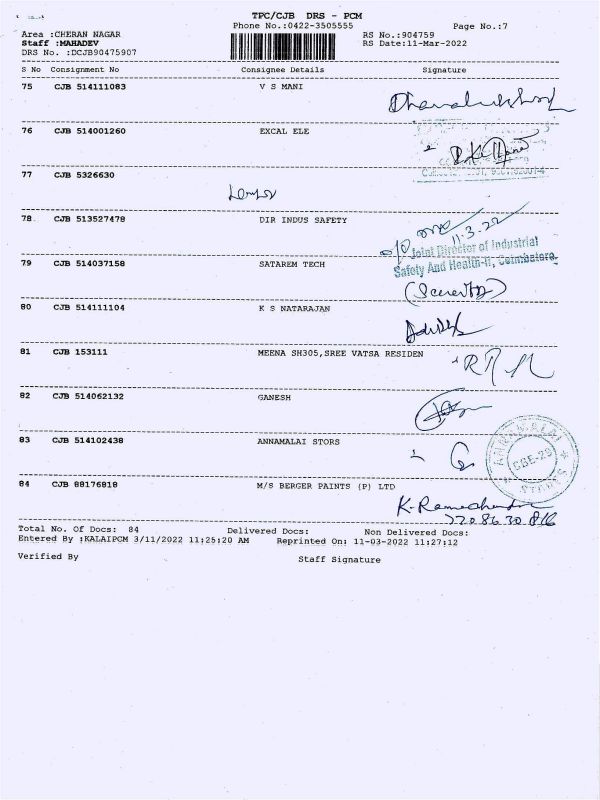 TPC/CJB DRS - PCM
Phone No.:0422-3505555
Page No.:7
Area :CHERAN NAGAR
RS No.:904759
Staff :MAHADEV
RS Date:11-Mar-2022
DRS No. :DCJB90475907
S No Consignment No Consignee Details Signature
75 CJB 514111083 V S MANI
76 CJB 514001260 EXCAL ELE
77 CJB 5326630
78. CJB 513527478 DIR INDUS SAFETY
11.3.22
Joint Director of Industrial
Safety And Health-II, Coimbatore.
79 CJB 514037158 SATAREM TECH
80 CJB 514111104 K S NATARAJAN
81 CJB 153111 MEENA SH305,SREE VATSA RESIDEN
82 CJB 514062132 GANESH
83 CJB 514102438 ANNAMALAI STORS
ANNAMALAI
CBE-29
STORES
84 CJB 88176818 M/S BERGER PAINTS (P) LTD
K. Ramachandra
Total No. Of Docs: 84 Delivered Docs: Non Delivered Docs:
Entered By :KALAIPCM 3/11/2022 11:25:20 AM Reprinted On: 11-03-2022 11:27:12
Verified By Staff Signature